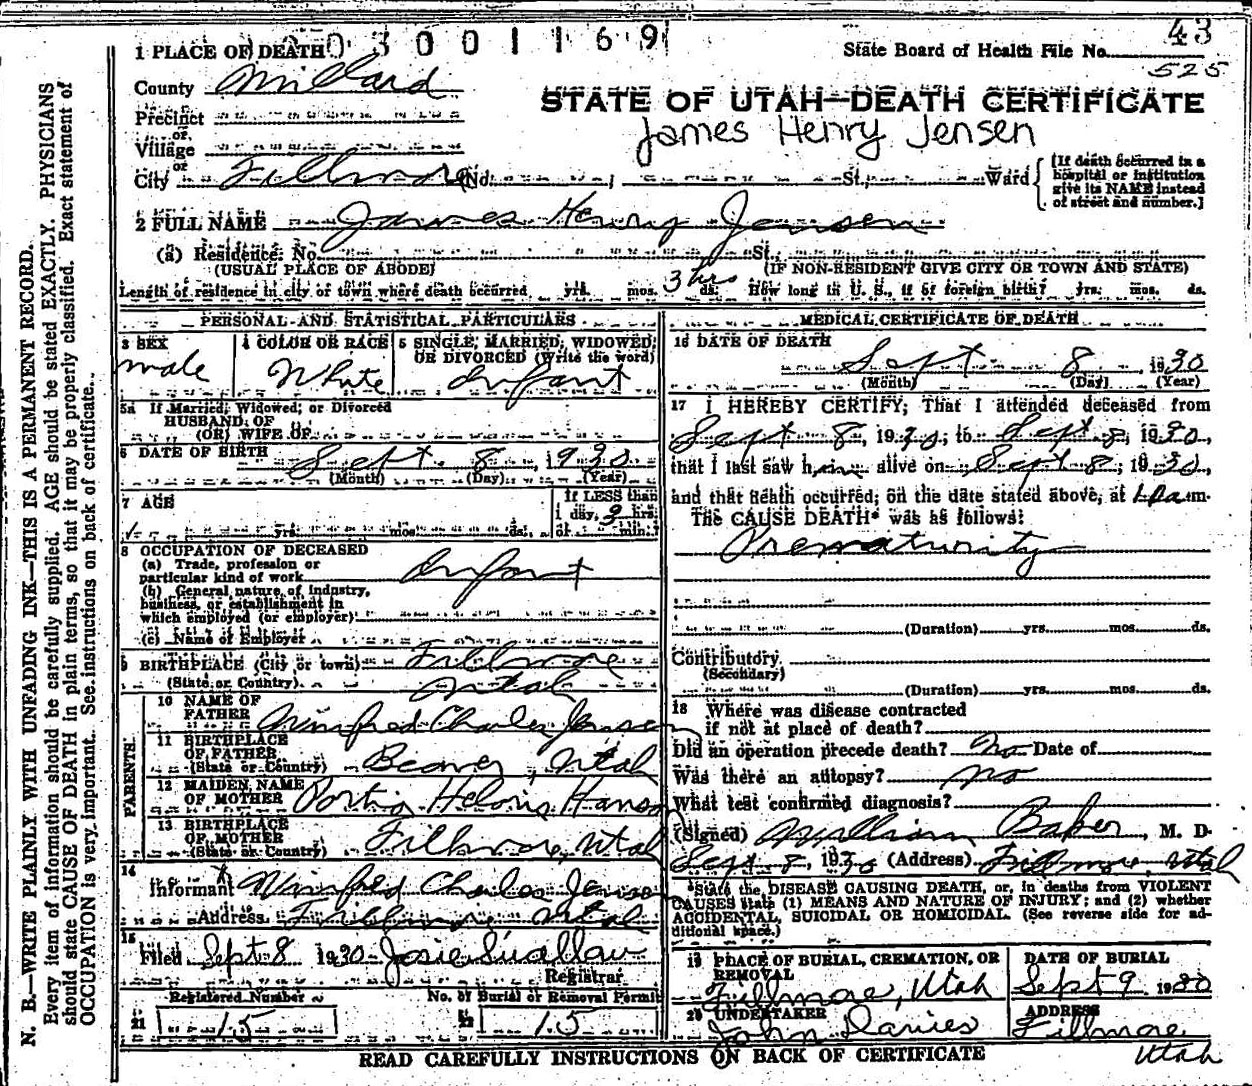 1 PLACE OF DEATH 0 3 0 0 1 1 6 9
State Board of Health File No. 43
525
County Millard
STATE OF UTAH—DEATH CERTIFICATE
James Henry Jensen
Precinct
or
Village
or
City Fillmore (No. St., Ward
[If death occurred in a
hospital or institution
give its NAME instead
of street and number.]
2 FULL NAME James Henry Jensen
(a) Residence. No. St.,
(USUAL PLACE OF ABODE) (IF NON-RESIDENT GIVE CITY OR TOWN AND STATE)
Length of residence in city or town where death occurred yrs. mos. 3 hrs ds. How long in U. S., if of foreign birth? yrs. mos. ds.
PERSONAL AND STATISTICAL PARTICULARS
3 SEX
male
4 COLOR OR RACE
White
5 SINGLE, MARRIED, WIDOWED,
OR DIVORCED (Write the word)
Infant
5a If Married, Widowed, or Divorced
HUSBAND OF
(OR) WIFE OF
6 DATE OF BIRTH Sept. 8, 1930
(Month) (Day) (Year)
7 AGE
yrs. mos. ds.
If LESS than
1 day, 3 hrs.
or min.
8 OCCUPATION OF DECEASED
(a) Trade, profession or
particular kind of work Infant
(b) General nature of industry,
business, or establishment in
which employed (or employer)
(c) Name of Employer
9 BIRTHPLACE (City or town) Fillmore
(State or Country) Utah
PARENTS
10 NAME OF
FATHER Winfred Charles Jensen
11 BIRTHPLACE
OF FATHER
(State or Country) Beaver, Utah
12 MAIDEN NAME
OF MOTHER Portia Hanson
13 BIRTHPLACE
OF MOTHER
(State or Country) Fillmore, Utah
14
Informant Winfred Charles Jensen
Address Fillmore Utah
15
Filed Sept 8 1930 Josie Swallow
Registrar
Registered Number
21 15
No. of Burial or Removal Permit
22 15
MEDICAL CERTIFICATE OF DEATH
16 DATE OF DEATH
Sept 8, 1930
(Month) (Day) (Year)
17 I HEREBY CERTIFY, That I attended deceased from
Sept 8, 1930, to Sept 8, 1930,
that I last saw him alive on Sept 8, 1930,
and that death occurred, on the date stated above, at m.
The CAUSE DEATH* was as follows:
Prematurity
(Duration) yrs. mos. ds.
Contributory
(Secondary)
(Duration) yrs. mos. ds.
18 Where was disease contracted
if not at place of death?
Did an operation precede death? No Date of
Was there an autopsy? no
What test confirmed diagnosis?
(Signed) William Baker, M. D.
Sept 8, 1930 (Address) Fillmore, Utah
*State the DISEASE CAUSING DEATH, or, in deaths from VIOLENT
CAUSES state (1) MEANS AND NATURE OF INJURY; and (2) whether
ACCIDENTAL, SUICIDAL OR HOMICIDAL. (See reverse side for ad-
ditional space.)
19 PLACE OF BURIAL, CREMATION, OR
REMOVAL
Fillmore, Utah
DATE OF BURIAL
Sept 9 1930
20 UNDERTAKER
John Davies
ADDRESS
Fillmore
Utah
READ CAREFULLY INSTRUCTIONS ON BACK OF CERTIFICATE
N. B.—WRITE PLAINLY WITH UNFADING INK—THIS IS A PERMANENT RECORD.
Every item of information should be carefully supplied. AGE should be stated EXACTLY. PHYSICIANS
should state CAUSE OF DEATH in plain terms, so that it may be properly classified. Exact statement of
OCCUPATION is very important. See instructions on back of certificate.